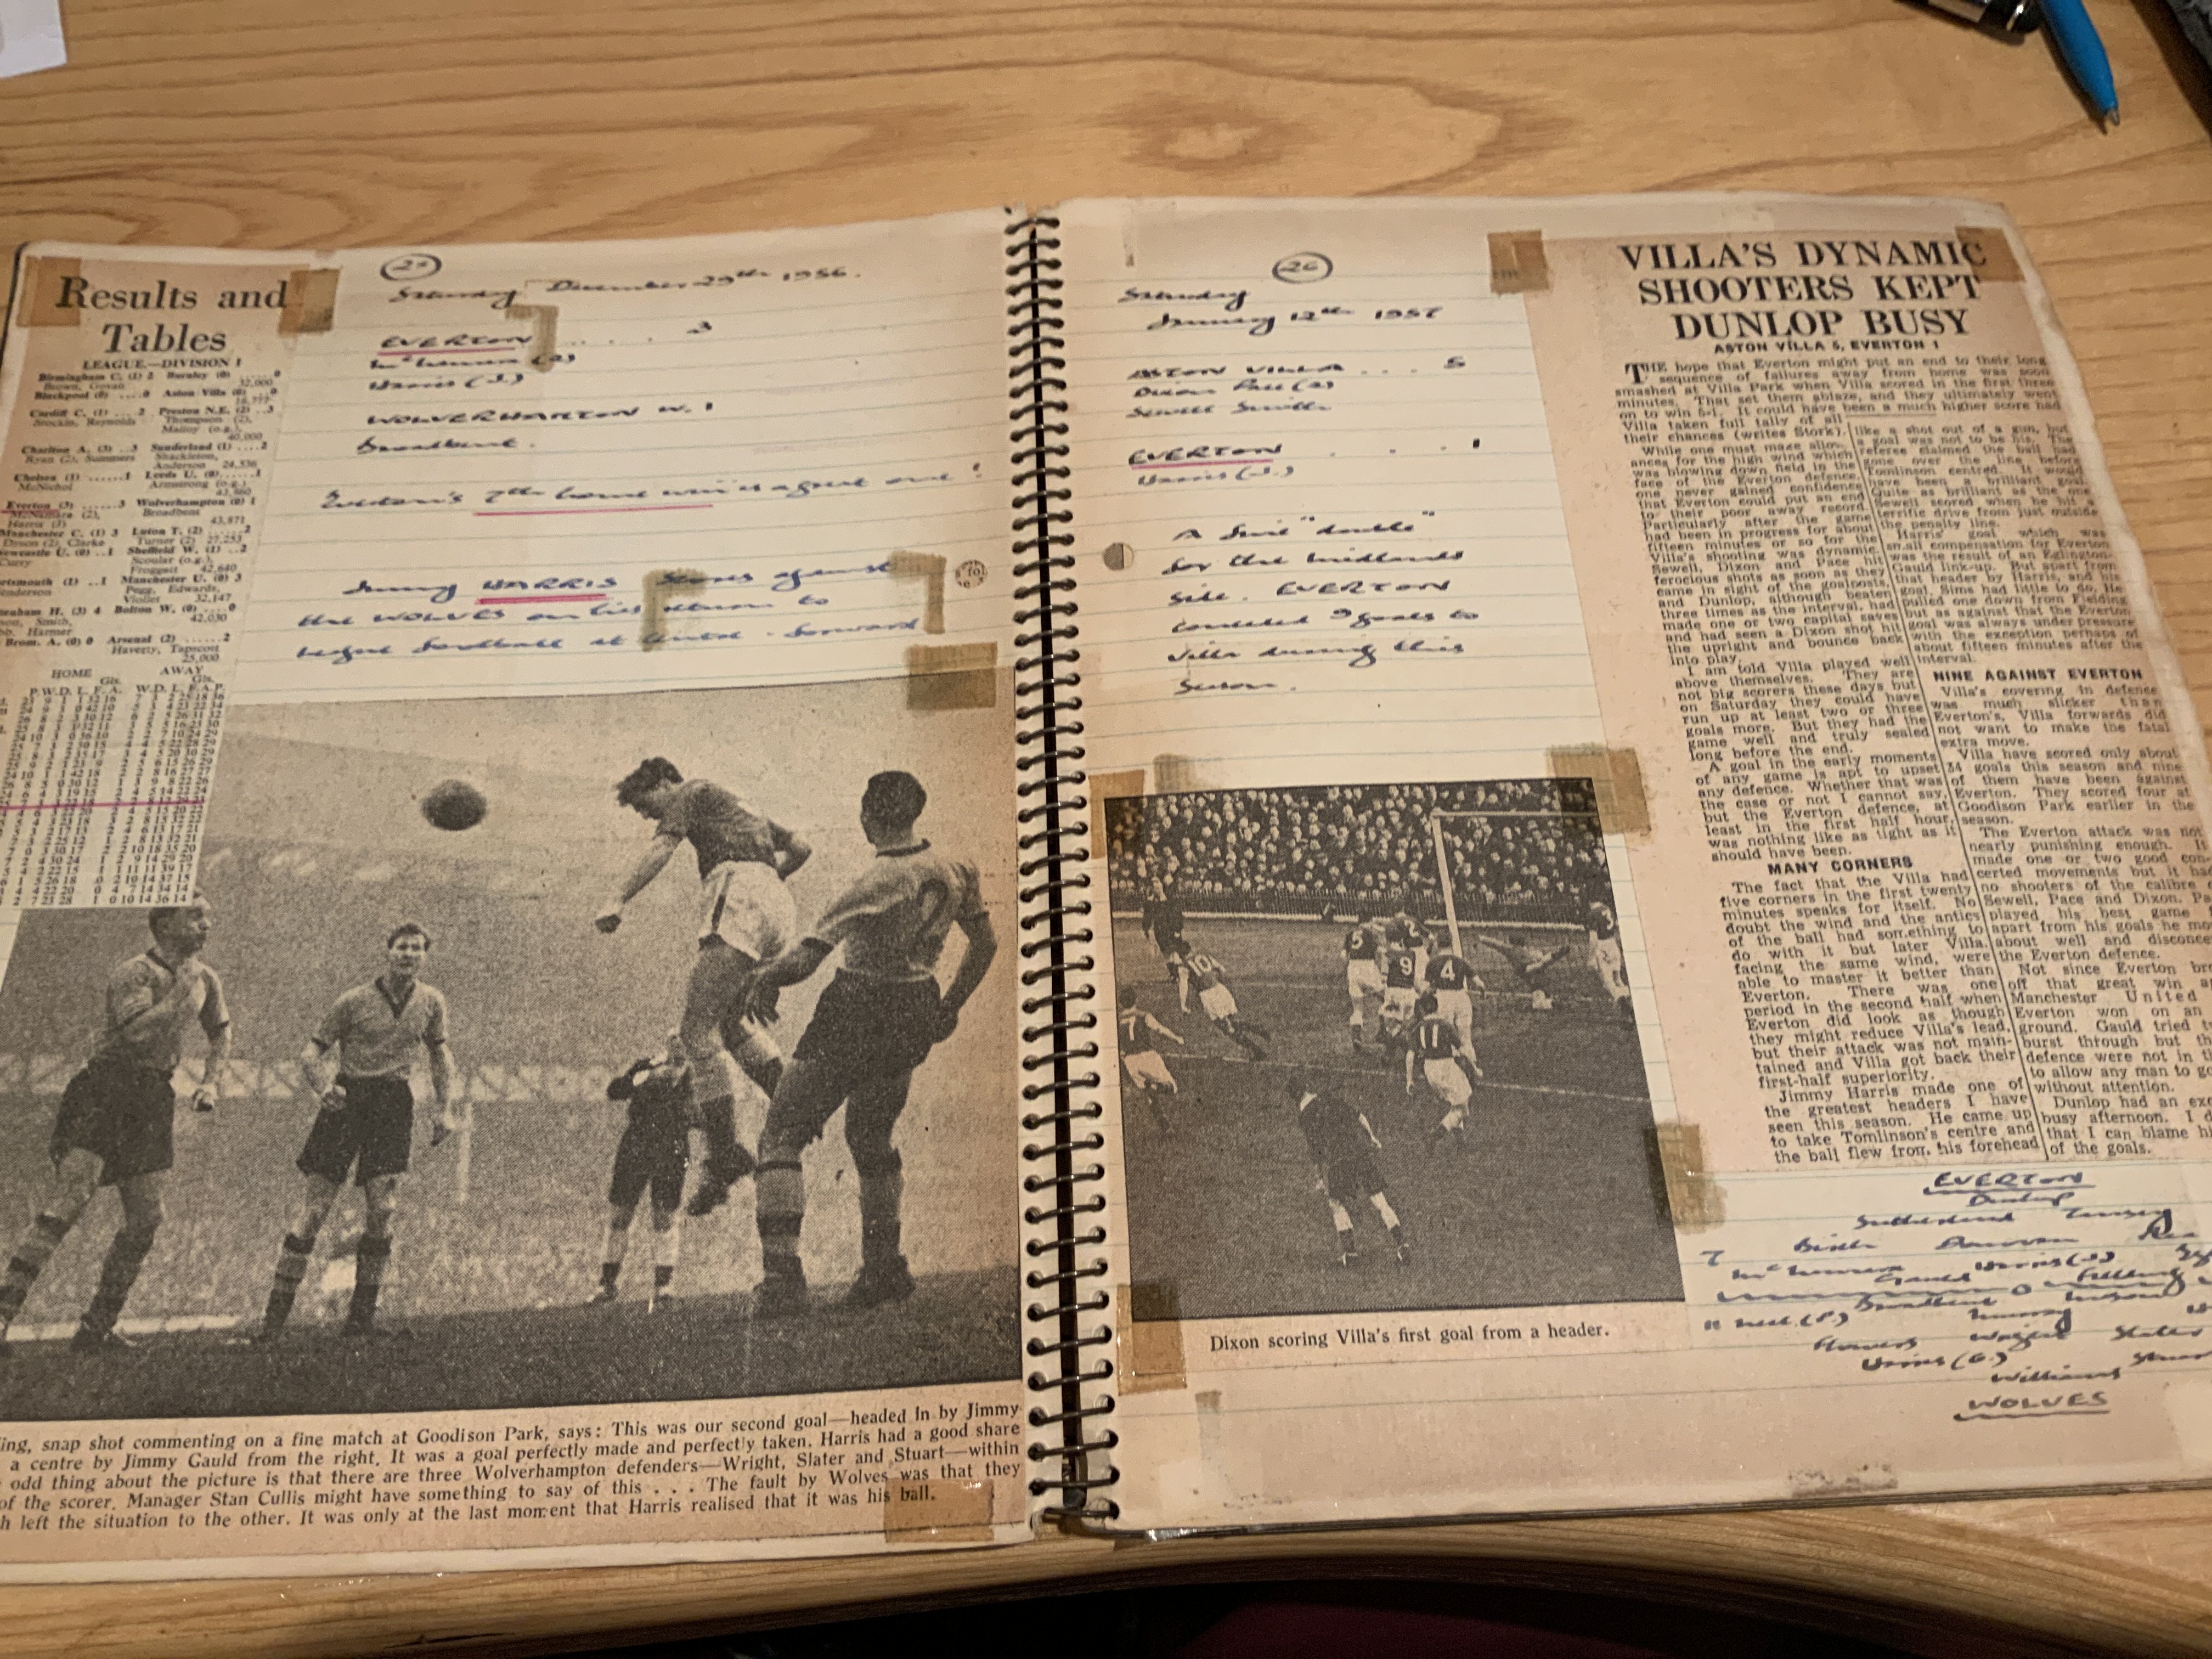 Results and
Tables
LEAGUE.—DIVISION 1
Birmingham C. (1) 2 Burnley (0) ......0
Brown, Govan 32,000
Blackpool (0) ....0 Aston Villa (0) ...0
16,777
Cardiff C. (1) ....2 Preston N.E. (2) ..3
Stockin, Reynolds Thompson (2),
Malloy (o.g.)
40,000
Charlton A. (3) ..3 Sunderland (1) ....2
Ryan (2), Summers Shackleton,
Anderson 24,536
Chelsea (1) ......1 Leeds U. (0) ......1
McNichol Armstrong (o.g.)
Everton (3) ......3 Wolverhampton (0) 1
(2), Broadbent
Harris (J) 43,871
Manchester C. (1) 3 Luton T. (2) ......2
Dyson (2), Clarke Turner (2) 27,253
ewcastle U. (0) ..1 Sheffield W. (1) ..2
Curry Scoular (o.g.)
Froggatt 42,640
rtsmouth (1) ..1 Manchester U. (0) 3
enderson Pegg, Edwards,
Viollet 32,147
tenham H. (3) 4 Bolton W. (0) ......0
son, Smith, 42,030
bb, Harmer
Brom. A. (0) 0 Arsenal (2) ......2
Haverty, Tapscott
25,000
HOME AWAY
Gls. Gls.
P. W. D. L. F. A. W. D. L. F. A. P.
Saturday December 29th 1956.
EVERTON . . . . 3
McNamara (2)
Harris (J.)
WOLVERHAMTON W. 1
Broadbent.
Everton's 7th home win is a great one!
Jimmy HARRIS scores against
the WOLVES on his return to
league football at centre-forward
ing, snap shot commenting on a fine match at Goodison Park, says: This was our second goal—headed in by Jimmy
a centre by Jimmy Gauld from the right. It was a goal perfectly made and perfectly taken. Harris had a good share
odd thing about the picture is that there are three Wolverhampton defenders—Wright, Slater and Stuart—within
of the scorer. Manager Stan Cullis might have something to say of this . . . The fault by Wolves was that they
h left the situation to the other. It was only at the last moment that Harris realised that it was his ball.
26
Saturday
January 12th 1957
ASTON VILLA . . . 5
Dixon Pace (2)
Sewell Smith
EVERTON . . . 1
Harris (J.)
A fine "double"
for the midlands
side. EVERTON
conceded 9 goals to
Villa during this
Season.
5
2
3
10
9
4
7
11
Dixon scoring Villa's first goal from a header.
VILLA'S DYNAMIC
SHOOTERS KEPT
DUNLOP BUSY
ASTON VILLA 5, EVERTON 1
THE hope that Everton might put an end to their long
sequence of failures away from home was soon
smashed at Villa Park when Villa scored in the first three
minutes. That set them ablaze, and they ultimately went
on to win 5-1. It could have been a much higher score had
Villa taken full tally of all
their chances (writes Stork).
While one must make allow-
ances for the high wind which
was blowing down field in the
face of the Everton defence,
one never gained confidence
that Everton could put an end
to their poor away record.
Particularly after the game
had been in progress for about
fifteen minutes or so for the
Villa's shooting was dynamic.
Sewell, Dixon and Pace hit
ferocious shots as soon as they
came in sight of the goalposts,
and Dunlop, although beaten
three times as the interval, had
made one or two capital saves
and had seen a Dixon shot hit
the upright and bounce back
into play.
I am told Villa played well
above themselves. They are
not big scorers these days but
on Saturday they could have
run up at least two or three
goals more. But they had the
game well and truly sealed
long before the end.
A goal in the early moments
of any game is apt to upset
any defence. Whether that was
the case or not I cannot say,
but the Everton defence, at
least in the first half hour,
was nothing like as tight as it
should have been.
MANY CORNERS
The fact that the Villa had
five corners in the first twenty
minutes speaks for itself. No
doubt the wind and the antics
of the ball had something to
do with it but later Villa,
facing the same wind, were
able to master it better than
Everton. There was one
period in the second half when
Everton did look as though
they might reduce Villa's lead,
but their attack was not main-
tained and Villa got back their
first-half superiority.
Jimmy Harris made one of
the greatest headers I have
seen this season. He came up
to take Tomlinson's centre and
the ball flew from his forehead
like a shot out of a gun, but
a goal was not to be his. The
referee claimed the ball had
gone over the line before
Tomlinson centred. It would
have been a brilliant goal.
Quite as brilliant as the one
Sewell scored when he hit a
terrific drive from just outside
the penalty line.
Harris' goal which was
small compensation for Everton
was the result of an Eglington,
Gauld link-up. But apart from
that header by Harris, and his
goal, Sims had little to do. He
pulled one down from Fielding
but as against that the Everton
goal was always under pressure
with the exception perhaps of
about fifteen minutes after the
interval.
NINE AGAINST EVERTON
Villa's covering in defence
was much slicker than
Everton's. Villa forwards did
not want to make the fatal
extra move.
Villa have scored only about
34 goals this season and nine
of them have been against
Everton. They scored four at
Goodison Park earlier in the
season.
The Everton attack was not
nearly punishing enough. It
made one or two good con-
certed movements but it had
no shooters of the calibre o
Sewell, Pace and Dixon. Pa
played his best game f
apart from his goals he mo
about well and disconce
the Everton defence.
Not since Everton bro
off that great win a
Manchester United
Everton won on an
ground. Gauld tried t
burst through but th
defence were not in t
to allow any man to go
without attention.
Dunlop had an exc
busy afternoon. I d
that I can blame hi
of the goals.
EVERTON
Dunlop
Sutherland Tansey
Birch Donovan Rea
McNamara Gauld Harris (J.) Fielding
Broadbent Murray
Flowers Wright Slater
Harris (G.) Stuart
Williams
WOLVES